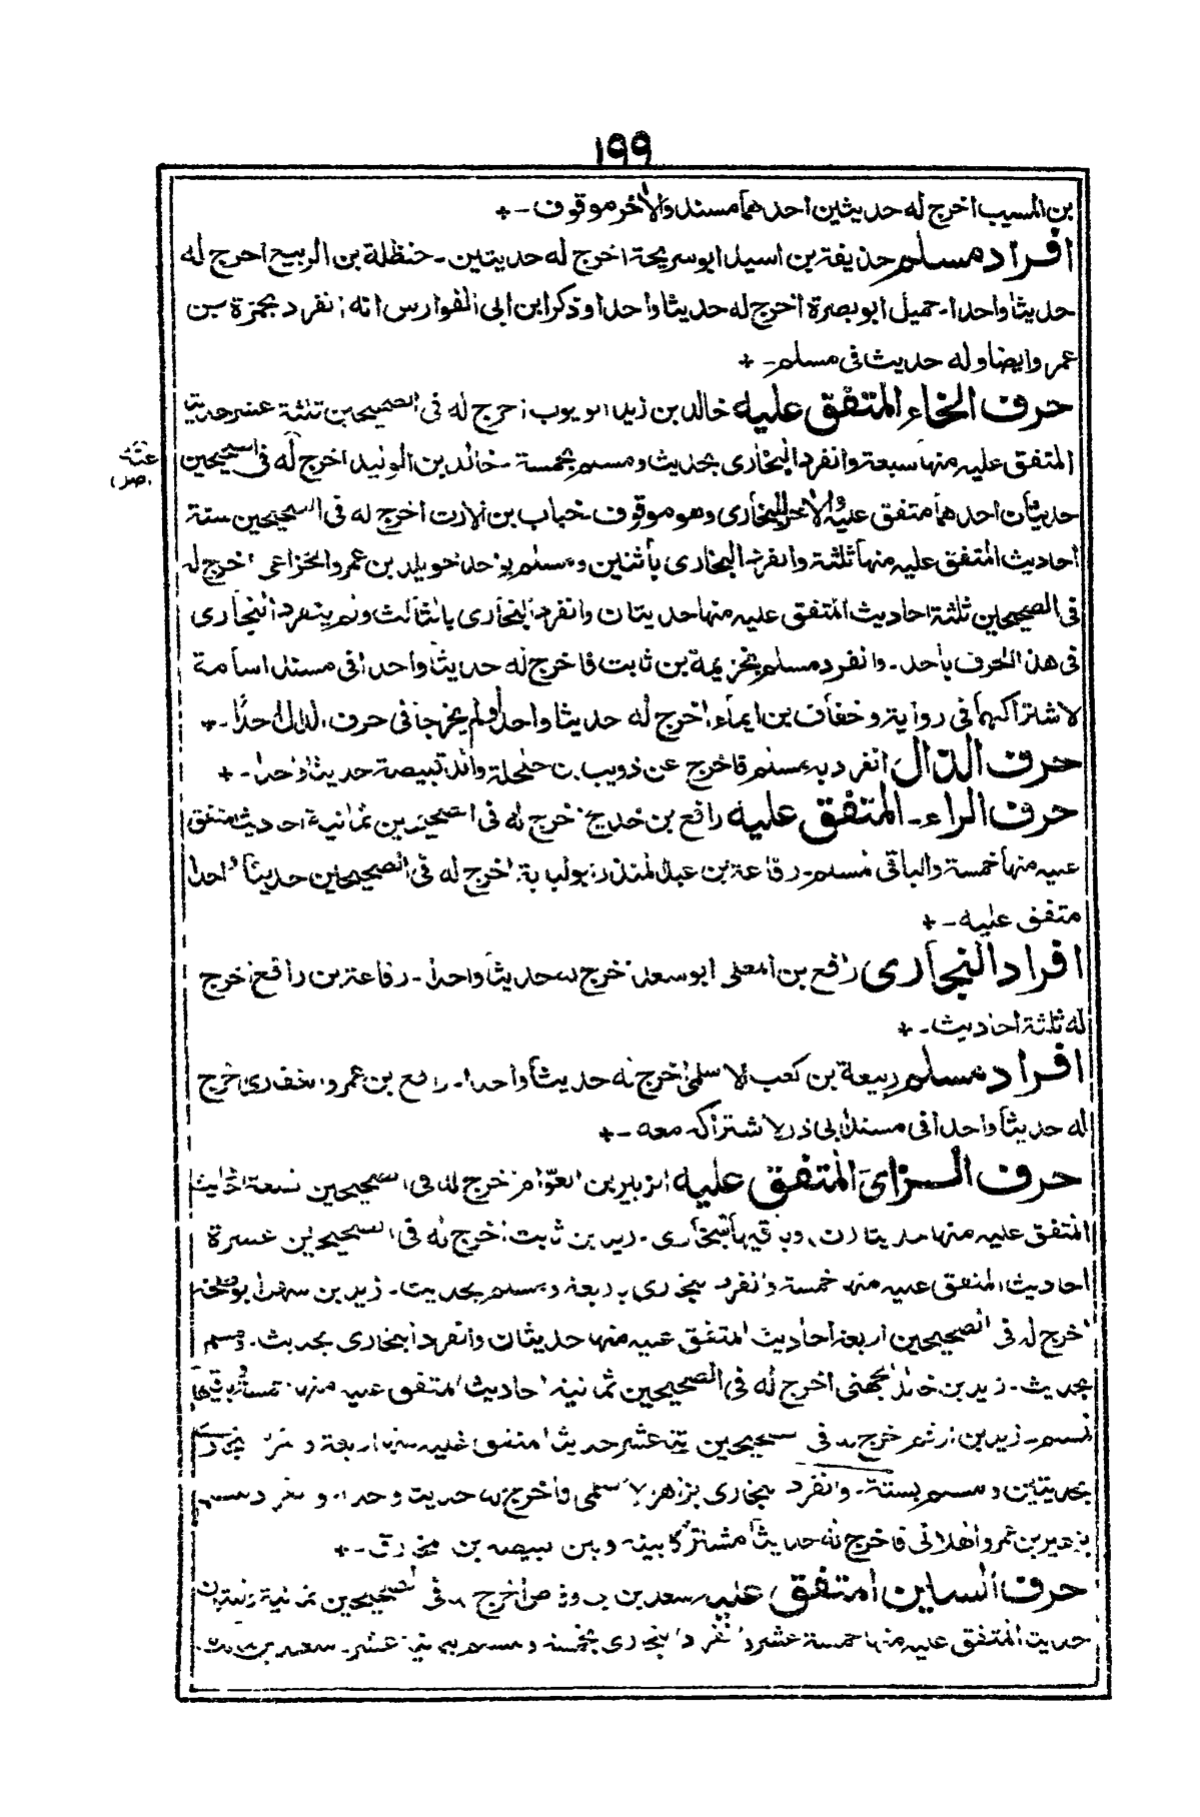 ١٩٩
بن المسيب اخرج له حديثين احدهما مسند والأخر موقوف ـ +
افراد مسلم حذيفة بن اسيد ابو سريحة اخرج له حديثين ـ حنظلة بن الربيع اخرج له
حديثا واحدا ـ حميل ابو بصرة اخرج له حديثا واحدا وذكر ابن ابى الفوارس انه انفرد بحمزة بن
عمرو ايضا وله حديث فى مسلم ـ +
حرف الخاء المتفق عليه خالد بن زيد ابو ايوب اخرج له فى الصحيحين ثلثة عشر حديثا
المتفق عليه منها سبعة وانفرد البخارى بحديث ومسلم بخمسة ـ خالد بن الوليد اخرج له فى الصحيحين
حديثان احدهما متفق عليه والأخر للبخارى وهو موقوف ـ خباب بن الارت اخرج له فى الصحيحين ستة
احاديث المتفق عليه منها ثلثة وانفرد البخارى باثنين ومسلم بواحد خويلد بن عمرو الخزاعى اخرج له
فى الصحيحين ثلثة احاديث المتفق عليه منها حديثان وانفرد البخارى بالثالث ولم ينفرد البخارى
فى هذا الحرف باحد ـ وانفرد مسلم بخزيمة بن ثابت فاخرج له حديثا واحدا فى مسند اسامة
لاشتراكهما فى روايته وخفاف بن ايماء اخرج له حديثا واحدا ولم يخرجا فى حرف الدال احدًا ـ +
حرف الذال انفرد به مسلم فاخرج عن ذويب بن حلحلة والد قبيصة حديثا واحدا ـ +
حرف الراء ـ المتفق عليه رافع بن خديج اخرج له فى الصحيحين ثمانية احاديث المتفق
عليه منها خمسة والباقى لمسلم ـ رفاعة بن عبد المنذر ابو لبابة اخرج له فى الصحيحين حديثا واحدا
متفق عليه ـ +
افراد البخارى رافع بن المعلى ابو سعد اخرج له حديثا واحدا ـ رفاعة بن رافع اخرج
له ثلثة احاديث ـ +
افراد مسلم ربيعة بن كعب الاسلمى اخرج له حديثا واحدا ـ رافع بن عمرو الغفارى اخرج
له حديثا واحدا فى مسند ابى ذر لاشتراكه معه ـ +
حرف الزاى المتفق عليه الزبير بن العوّام اخرج له فى الصحيحين تسعة احاديث
المتفق عليه منها حديثان وباقيها للبخارى ـ زيد بن ثابت اخرج له فى الصحيحين عشرة
احاديث المتفق عليه منها خمسة وانفرد البخارى باربعة ومسلم بحديث ـ زيد بن سهل ابو طلحة
اخرج له فى الصحيحين اربعة احاديث المتفق عليه منها حديثان وانفرد البخارى بحديث ـ ومسلم
بحديث ـ زيد بن خالد الجهنى اخرج له فى الصحيحين ثمانية احاديث المتفق عليه منها خمسة وباقيها
لمسلم ـ زيد بن ارقم اخرج له فى الصحيحين عشر حديثا المتفق عليه منها اربعة وانفرد البخارى
بحديثين ومسلم بستة ـ وانفرد البخارى بزاهر الاسلمى فاخرج له حديثا واحدا ـ وانفرد مسلم
بزهير بن عمرو الهلالى فاخرج له حديثا مشتركا بينه وبين قبيصة بن مخارق ـ +
حرف السين المتفق عليه سعد بن ابى وقاص اخرج له فى الصحيحين ثمانية وثلثين
حديثا المتفق عليه منها خمسة عشر وانفرد البخارى بخمسة ومسلم بثمانية عشر ـ سعد بن مالك